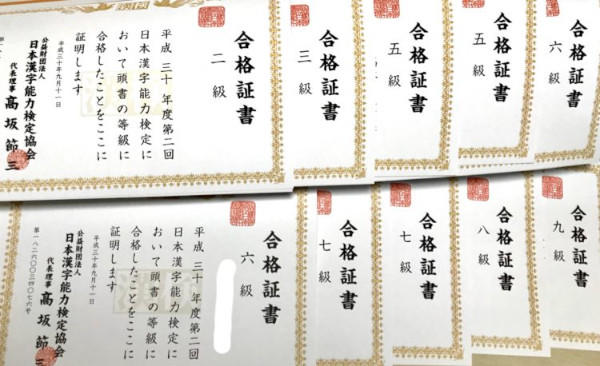 合格証書
六級
合格証書
五級
合格証書
五級
合格証書
三級
合格証書
二級
平成三十年度第二回
日本漢字能力検定に
おいて頭書の等級に
合格したことをここに
証明します
平成三十年九月十一日
公益財団法人
日本漢字能力検定協会
代表理事 高坂節三
合格証書
九級
合格証書
八級
合格証書
七級
合格証書
七級
合格証書
六級
平成三十年度第二回
日本漢字能力検定に
おいて頭書の等級に
合格したことをここに
証明します
平成三十年九月十一日
公益財団法人
日本漢字能力検定協会
代表理事 高坂節三
第一八二六〇〇三四〇七六号